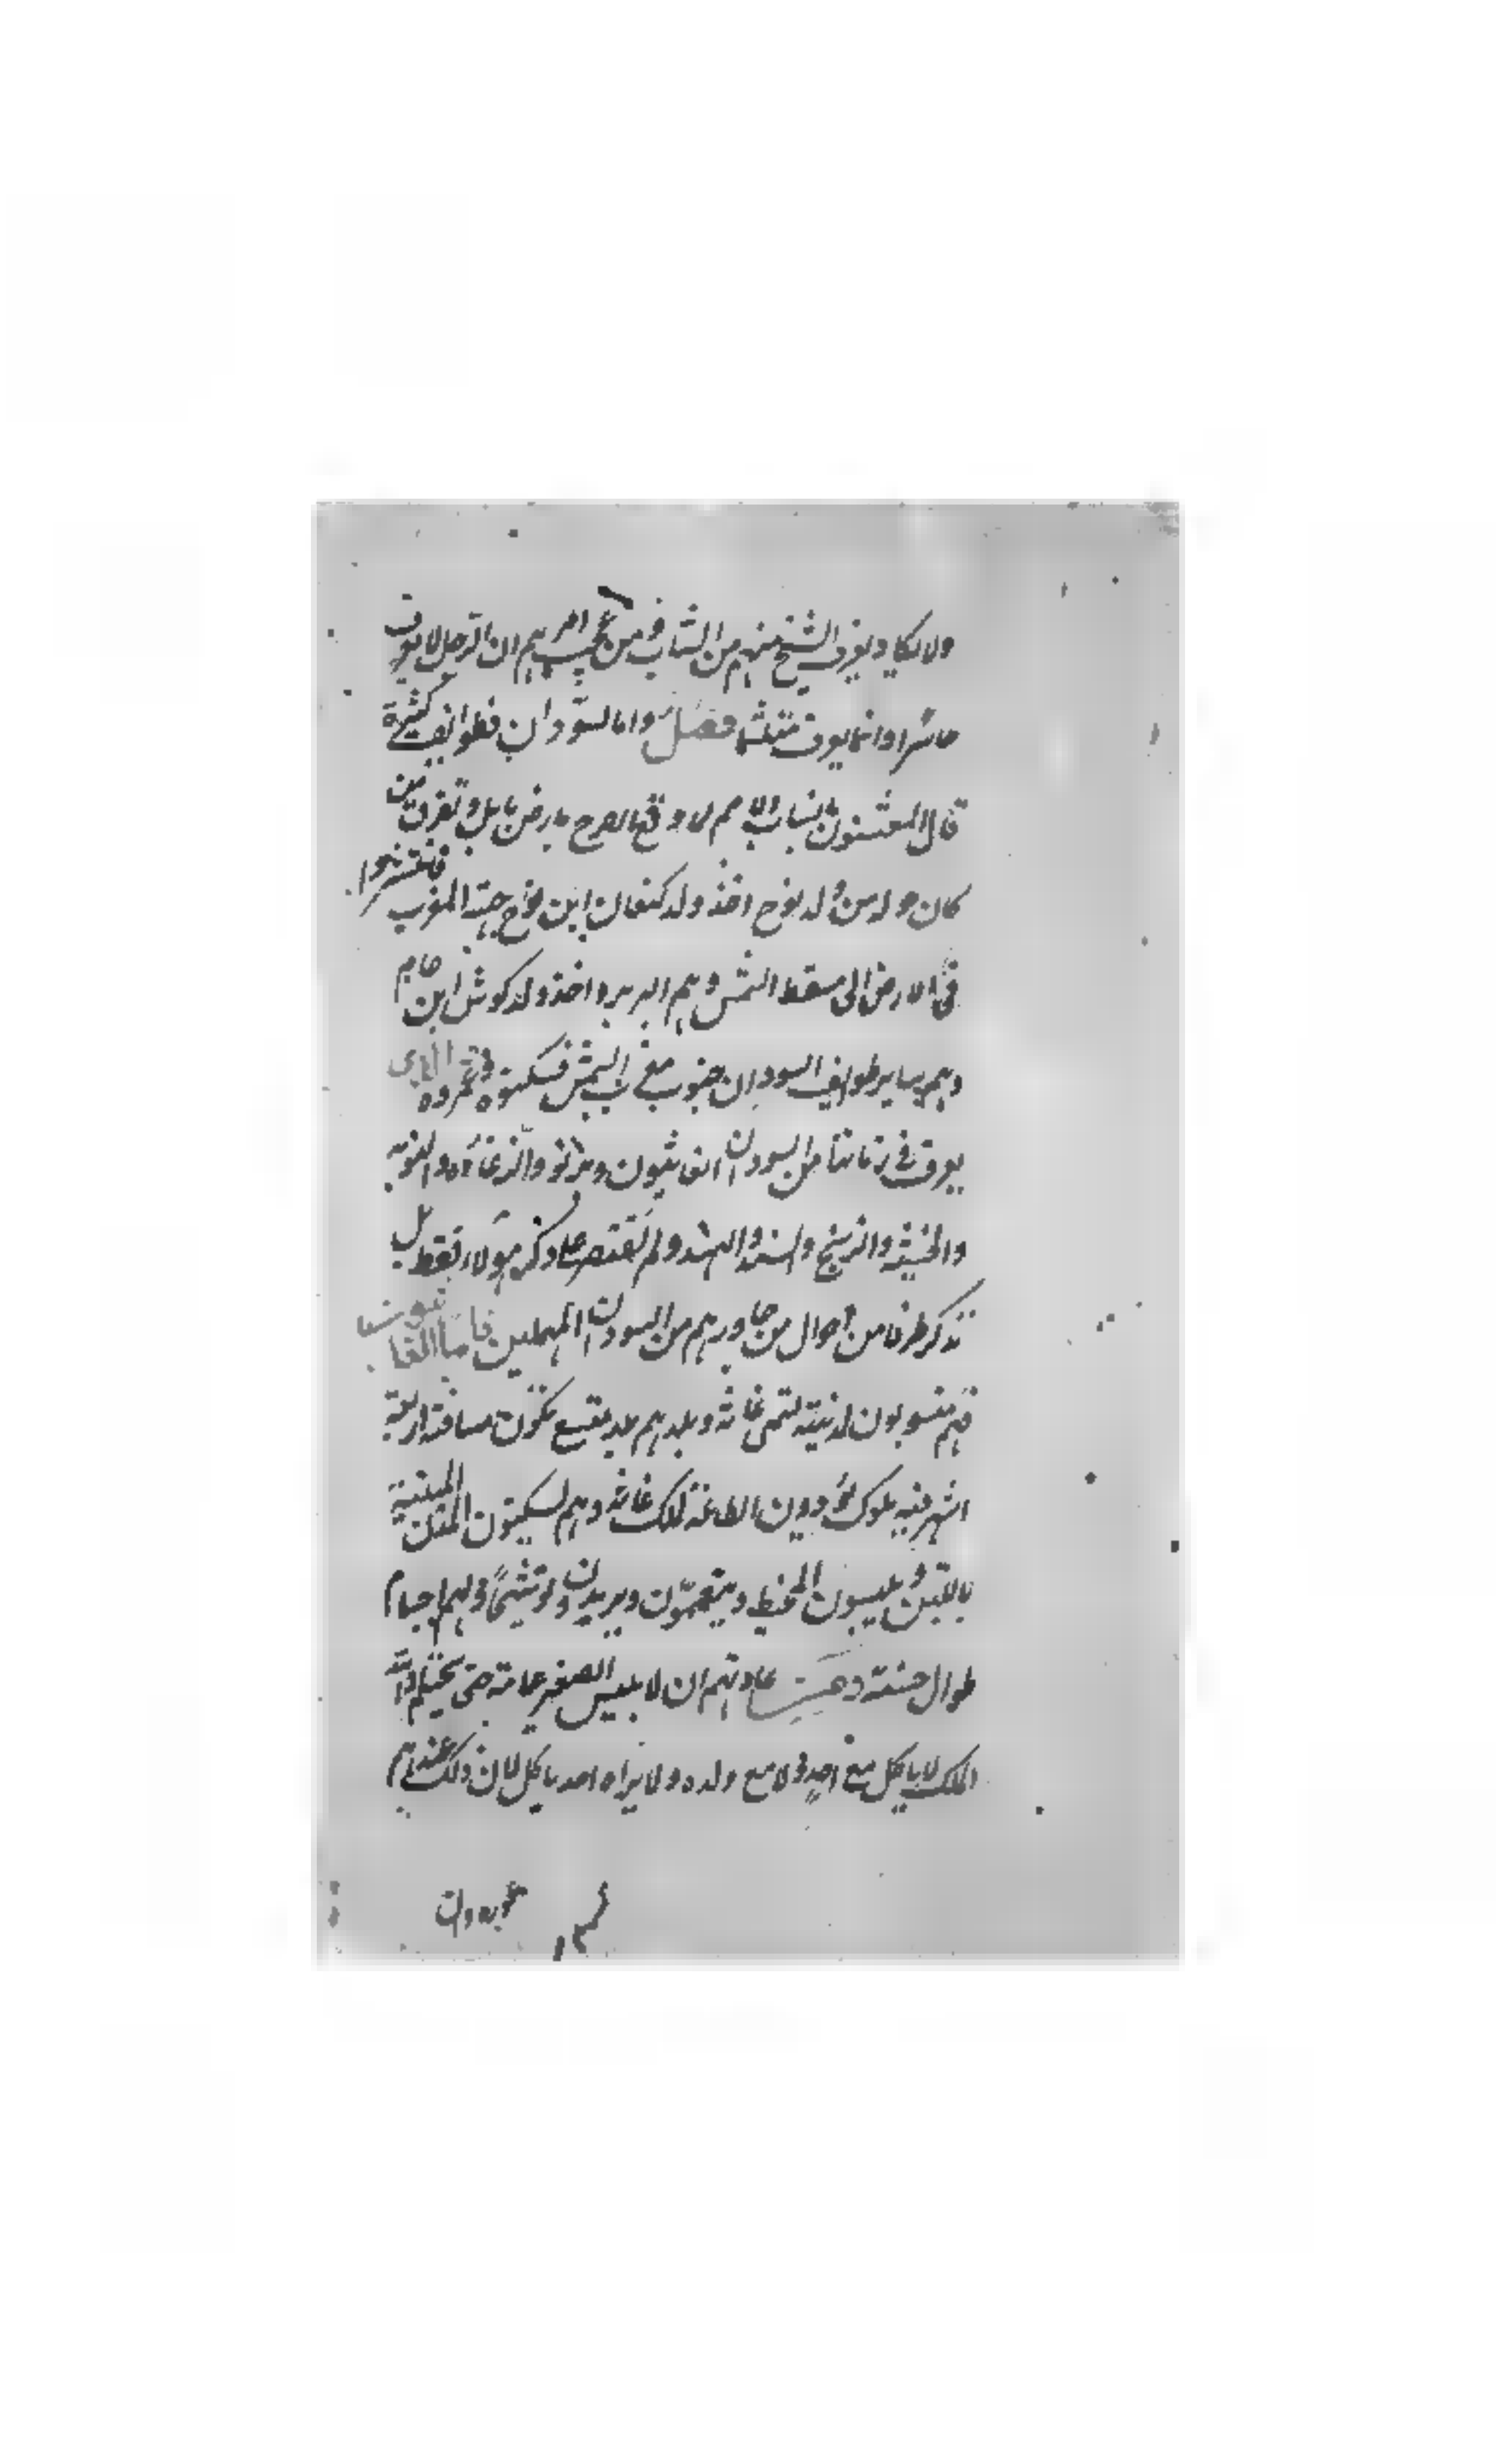 ولا يكاد يعرف الشيخ منهم من الشاب ومن عجيب امرهم ان الرجل لا يعرف
حاسرا وانما يعرف متلثما فصل واما السودان فطوايف كثيرة
قال المعتنون بانساب الامم لما وقع الصرح بارض بابل وتفرق من
كان حوله من ولد نوح اخذ ولد كنعان ابن نوح جهة المغرب فانتشروا
في الارض الى مسقط الشمس وهم البربر واخذ ولد كوش ابن حام
وهم ساير طوايف السودان جنوب مغرب الشمس فسكنوه وعمروه الذي
يعرف في زماننا من السودان الغانيون وبرنو والزغاوه والنوبه
والحبشه والزنج والسند والهند ولم نقتصر على ذكر هؤلاء فقط بل
نذكر طرفا من احوال من جاورهم من السودان المهملين فاما الغانيون
فهم منسوبون لمدينة تسمى غانه وبلدهم بلد متسع تكون مسافة اربعة
اشهر فيه ملوك يؤدون الطاعة لملك غانه وهم يسكنون المدن المبنية
بالتبن ويلبسون المخيط ويتعممون ولهم اجسام
طوال حسنة ومن عادتهم ان لا يلبس الصغير عمامة حتى يحتلم وان
الملك لا ياكل مع احد ولا مع ولده ولا يراه احد ياكل لان ذلك عندهم